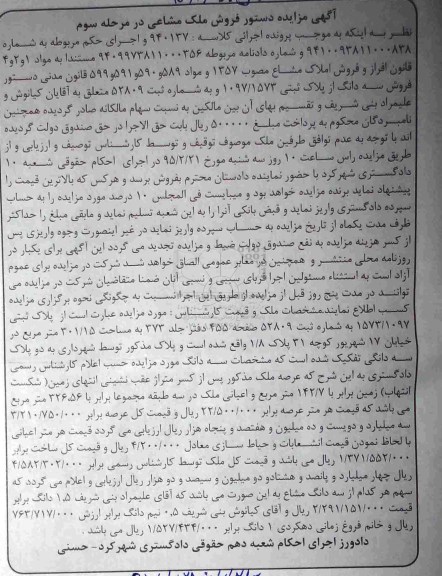 آگهی مزایده دستور فروش ملک مشاعی در مرحله سوم
نظر به اینکه به موجب پرونده اجرائی کلاسه: ۹۴۰۱۳۷ و اجرای حکم مربوطه به شماره
۹۴۱۰۰۹۳۸۱۱۰۰۰۸۳۸ و شماره دادنامه مربوطه ۹۴۰۹۹۷۳۸۱۱۰۰۰۳۵۶ مستندا به مواد ۱و۲و۴
قانون افراز و فروش املاک مشاع مصوب ۱۳۵۷ و مواد ۵۸۹و۵۹۰و۵۹۱و۵۹۹ قانون مدنی دستور
فروش سه دانگ از پلاک ثبتی ۱۰۹۷/۱۵۷۳ و به شماره ثبت ۵۲۸۰۹ متعلق به آقایان کیانوش و
علیمراد بنی شریف و تقسیم بهای آن بین مالکین به نسبت سهام مالکانه صادر گردیده همچنین
نامبردگان محکوم به پرداخت مبلغ ۵۰۰۰۰۰ ریال بابت حق الاجرا در حق صندوق دولت گردیده
اند با توجه به عدم توافق طرفین ملک موصوف توقیف و توسط کارشناس توصیف و ارزیابی و از
طریق مزایده راس ساعت ۱۰ روز سه شنبه مورخ ۹۵/۲/۲۱ در اجرای احکام حقوقی شعبه ۱۰
دادگستری شهرکرد با حضور نماینده دادستان محترم بفروش برسد و هرکس که بالاترین قیمت را
پیشنهاد نماید برنده مزایده خواهد بود و میبایست فی المجلس ۱۰ درصد مورد مزایده را به حساب
سپرده دادگستری واریز نماید و قبض بانکی آنرا به این شعبه تسلیم نماید و مابقی مبلغ را حداکثر
ظرف مدت یکماه از تاریخ مزایده به حساب سپرده واریز نماید در غیر اینصورت وجوه واریزی پس
از کسر هزینه مزایده به نفع صندوق دولت ضبط و مزایده تجدید می گردد این آگهی برای یکبار در
روزنامه محلی منتشر و همچنین در معابر عمومی الصاق خواهد شد شرکت در مزایده برای عموم
آزاد است به استثناء مسئولین اجرا قربای سببی و نسبی آنان ضمنا متقاضیان شرکت در مزایده می
توانند در مدت پنج روز قبل از مزایده از طریق این اجرا نسبت به چگونگی نحوه برگزاری مزایده
کسب اطلاع نمایند مشخصات ملک و قیمت کارشناس: مورد مزایده عبارت است از پلاک ثبتی
۱۵۷۳/۱۰۹۷ به شماره ثبت ۵۲۸۰۹ صفحه ۴۵۵ دفتر جلد ۳۷۳ به مساحت ۳۰۱/۱۵ متر مربع در
خیابان ۱۷ شهریور کوچه ۳۱ پلاک ۱/۸ واقع شده است و پلاک مذکور توسط شهرداری به دو پلاک
سه دانگی تفکیک شده است که مشخصات سه دانگ مورد مزایده حسب اعلام کارشناس رسمی
دادگستری به این شرح که عرصه ملک مذکور پس از کسر متراژ عقب نشینی انتهای زمین( شکست
انتهاب) زمین برابر با ۱۴۲/۷ متر مربع و اعیانی ملک در سه طبقه مجموعا برابر با ۳۲۶.۵۶ متر مربع
می باشد که قیمت هر متر عرصه برابر ۲۲/۵۰۰/۰۰۰ ریال و قیمت کل عرصه برابر ۳/۲۱۰/۷۵۰/۰۰۰
سه میلیارد و دویست و ده میلیون و هفتصد و پنجاه هزار ریال ارزیابی می گردد قیمت هر متر اعیانی
با لحاظ نمودن قیمت انشعابات و حیاط سازی معادل ۴/۲۰۰/۰۰۰ ریال و قیمت کل ساخت برابر
۱/۳۷۱/۵۵۲/۰۰۰ ریال می باشد و قیمت کل ملک توسط کارشناس رسمی برابر ۴/۵۸۲/۳۰۲/۰۰۰
ریال چهار میلیارد و پانصد و هشتادو دو میلیون و سیصد و دو هزار ریال ارزیابی و اعلام می گردد که
سهم هر کدام از سه دانگ مشاع به این صورت می باشد که آقای علیمراد بنی شریف ۱.۵ دانگ برابر
قیمت ۲/۲۹۱/۱۵۱/۰۰۰ ریال و آقای کیانوش بنی شریف ۰.۵ نیم دانگ برابر ارزش ۷۶۳/۷۱۷/۰۰۰
ریال و خانم فروغ زمانی دهکردی ۱ دانگ برابر ۱/۵۲۷/۴۳۴/۰۰۰ ریال می باشد
دادورز اجرای احکام شعبه دهم حقوقی دادگستری شهرکرد- حسنی